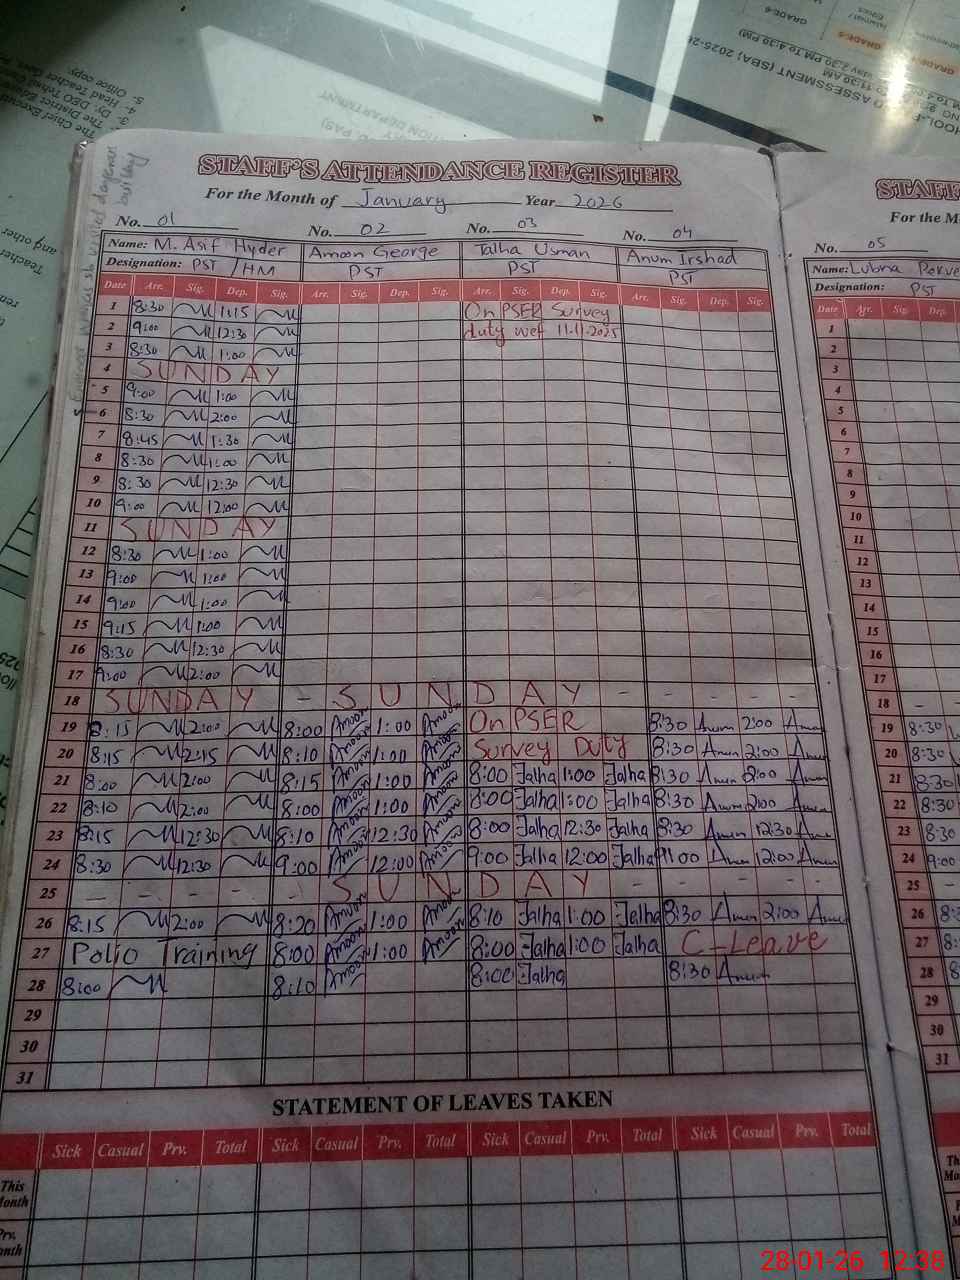 STAFF'S ATTENDANCE REGISTER
For the Month of January Year 2026
No. 01 No. 02 No. 03 No. 04
Name: M. Asif Hyder Amoon George Talha Usman Anum Irshad
Designation: PST / HM PST PST PST
Date Arr. Sig. Dep. Sig. Arr. Sig. Dep. Sig. Arr. Sig. Dep. Sig. Arr. Sig. Dep. Sig.
1 8:30 1:15 On PSER Survey
2 9:00 12:30 duty wef 11-11-2025
3 8:30 1:00
4 SUNDAY
5 9:00 1:00
6 8:30 2:00
7 8:45 1:30
8 8:30 1:00
9 8:30 12:30
10 9:00 12:00
11 SUNDAY
12 8:30 1:00
13 9:00 1:00
14 9:00 1:00
15 9:15 1:00
16 8:30 12:30
17 9:00 2:00
18 SUNDAY - SUNDAY - - - -
19 8:15 2:00 8:00 Amoon 1:00 Amoon On PSER 8:30 Anum 2:00 Anum
20 8:15 2:15 8:10 Amoon 1:00 Amoon Survey Duty 8:30 Anum 2:00 Anum
21 8:00 2:00 8:15 Amoon 1:00 Amoon 8:00 Talha 1:00 Talha 8:30 Anum 2:00 Anum
22 8:10 2:00 8:00 Amoon 1:00 Amoon 8:00 Talha 1:00 Talha 8:30 Anum 2:00 Anum
23 8:15 12:30 8:10 Amoon 12:30 Amoon 8:00 Talha 12:30 Talha 8:30 Anum 12:30 Anum
24 8:30 12:30 9:00 Amoon 12:00 Amoon 9:00 Talha 12:00 Talha 9:00 Anum 12:00 Anum
25 - - - - - SUNDAY - - - -
26 8:15 2:00 8:20 Amoon 1:00 Amoon 8:10 Talha 1:00 Talha 8:30 Anum 2:00 Anum
27 Polio Training 8:00 Amoon 1:00 Amoon 8:00 Talha 1:00 Talha C-Leave
28 8:00 8:10 Amoon 8:00 Talha 8:30 Anum
29
30
31
STATEMENT OF LEAVES TAKEN
Sick Casual Prv. Total Sick Casual Prv. Total Sick Casual Prv. Total Sick Casual Prv. Total
This
Month
No. 05
Name: Lubna
Designation: PST
Date Arr. Sig. Dep.
1
2
3
4
5
6
7
8
9
10
11
12
13
14
15
16
17
18 - -
19 8:30
20 8:30
21 8:30
22 8:30
23 8:30
24 9:00
25 - -
26
27
28
29
30
31
ASSESSMENT (SBA) 2025-26
GRADE-5
GRADE-6
5. Office copy
28-01-26 12:38